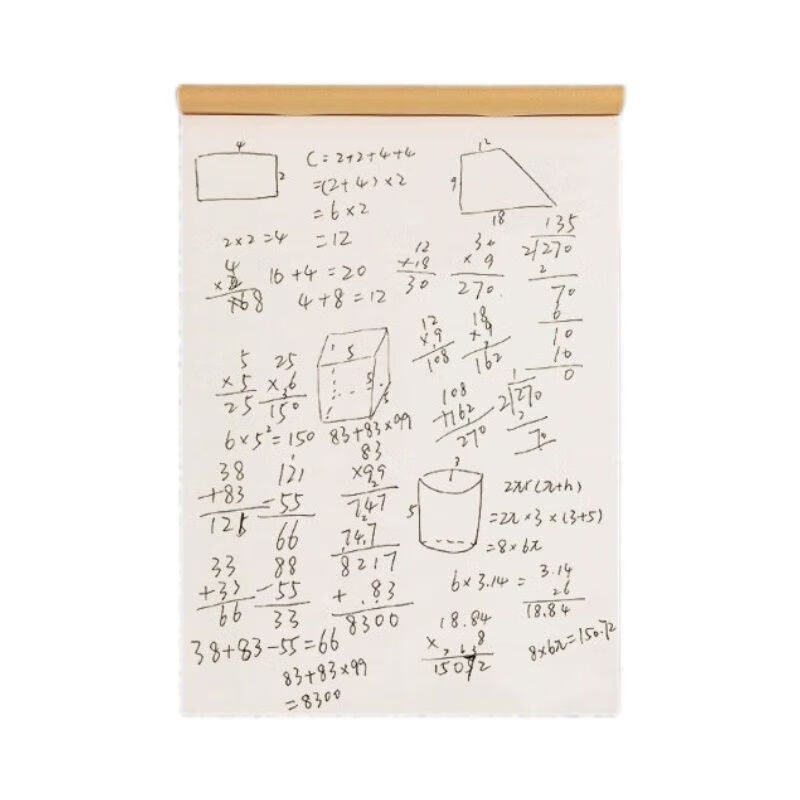 4
2
C = 2+2+4+4
=(2+4)×2
=6×2
=12
2×2=4
4
×
68
16+4=20
4+8=12
12
9
18
12
+18
30
30
×9
270
135
2/270
2
70
6
10
10
0
5
×5
25
25
×6
150
6×5²=150
5
5
5
12
×9
108
18
×9
162
108
+162
270
1
2/270
2
70
83+83×99
83
×99
747
747
8217
+83
8300
38
+83
121
-55
66
33
+33
66
88
-55
33
38+83-55=66
83+83×99
=8300
3
5
2πr(π+h)
=2π×3×(3+5)
=8×6π
6×3.14=
3.14
×6
18.84
18.84
×8
150
2
8×6π=150.72